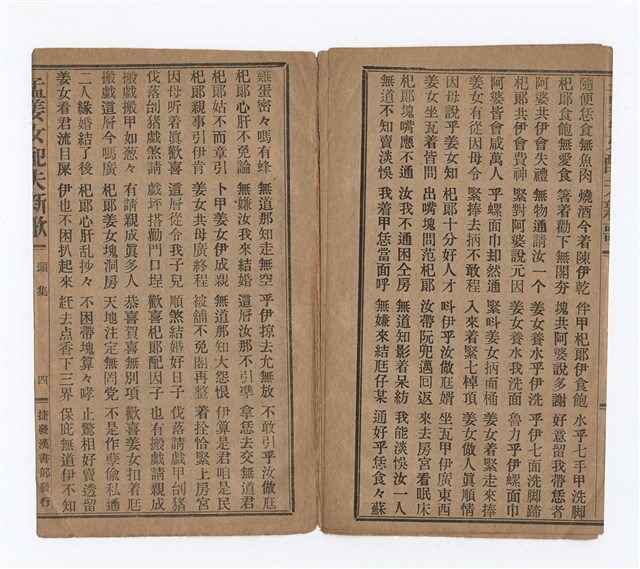 隨便恁食無魚肉 燒酒今着陳伊乾 件甲杞郎伊食飽 水乎七手甲洗脚
杞郎食飽無愛食 箸着勸下無閣夯 塊共阿婆說多謝 好意留我帶恁者
阿婆共伊會失禮 無物通請汝一个 姜女養水乎伊洗 乎伊七面洗脚蹄
杞郎共伊會費神 緊對阿婆說元因 姜女養水我洗面 魯力乎伊螺面巾
阿婆皆會咸萬人 乎螺面巾却然通 緊呌姜女捾面桶 姜女着緊走來捧
姜女有從因母令 緊捧去捾不敢程 入來着緊七棹頂 姜女做人眞順情
因母說乎姜女知 杞郎十分好人才 呌伊乎汝做尫婿 坐瓦甲伊廣東西
姜女坐瓦着皆問 出嘴塊問范杞郎 汝帶阮兜邁回返 來去房宮看眠床
杞郎塊嘴應不通 汝我不通困仝房 無道知影着呆紡 我能淡悞汝一人
無道不知賣淡悞 我着甲恁當面呼 無嫌來結尫仔某 通好乎恁食々蘇
雞蛋密々嗎有蜂 無道那知走無空 乎伊掠去尤無放 不敢引乎汝做尫
杞郎心肝不免論 無嫌汝我來結婚 這厝汝那不引凖 拿恁去交無道君
杞郎姑不而章引 卜甲姜女伊成親 無道那知大怨恨 伊算是君咱是民
杞郎親事引伊肯 姜女共母廣終程 被舖不免閣再整 着拴恰緊上房宮
因母听着眞歡喜 這厝從今我子兒 順煞結婚好日子 伐落請戲甲刣猪
伐落刣猪戲煞請 戲坪搭勸門口埕 歡喜杞郎配因子 也有搬戲請親成
搬戲搬甲如葱々 有請親成眞多人 恭喜賀喜無別項 歡喜姜女扣着尫
搬戲這厝今嗎廣 杞郎姜女塊洞房 天地注定無罔党 不是作孽偸私通
二人緣婚結了後 杞郎心肝乱抄々 不困帶塊算々哮 止驚相好賣透留
姜女看君流目屎 伊也不困扒起來 赶去点香下三界 保庇無道伊不知
孟姜女配夫新歌 頭集 四 捷發漢書部發行